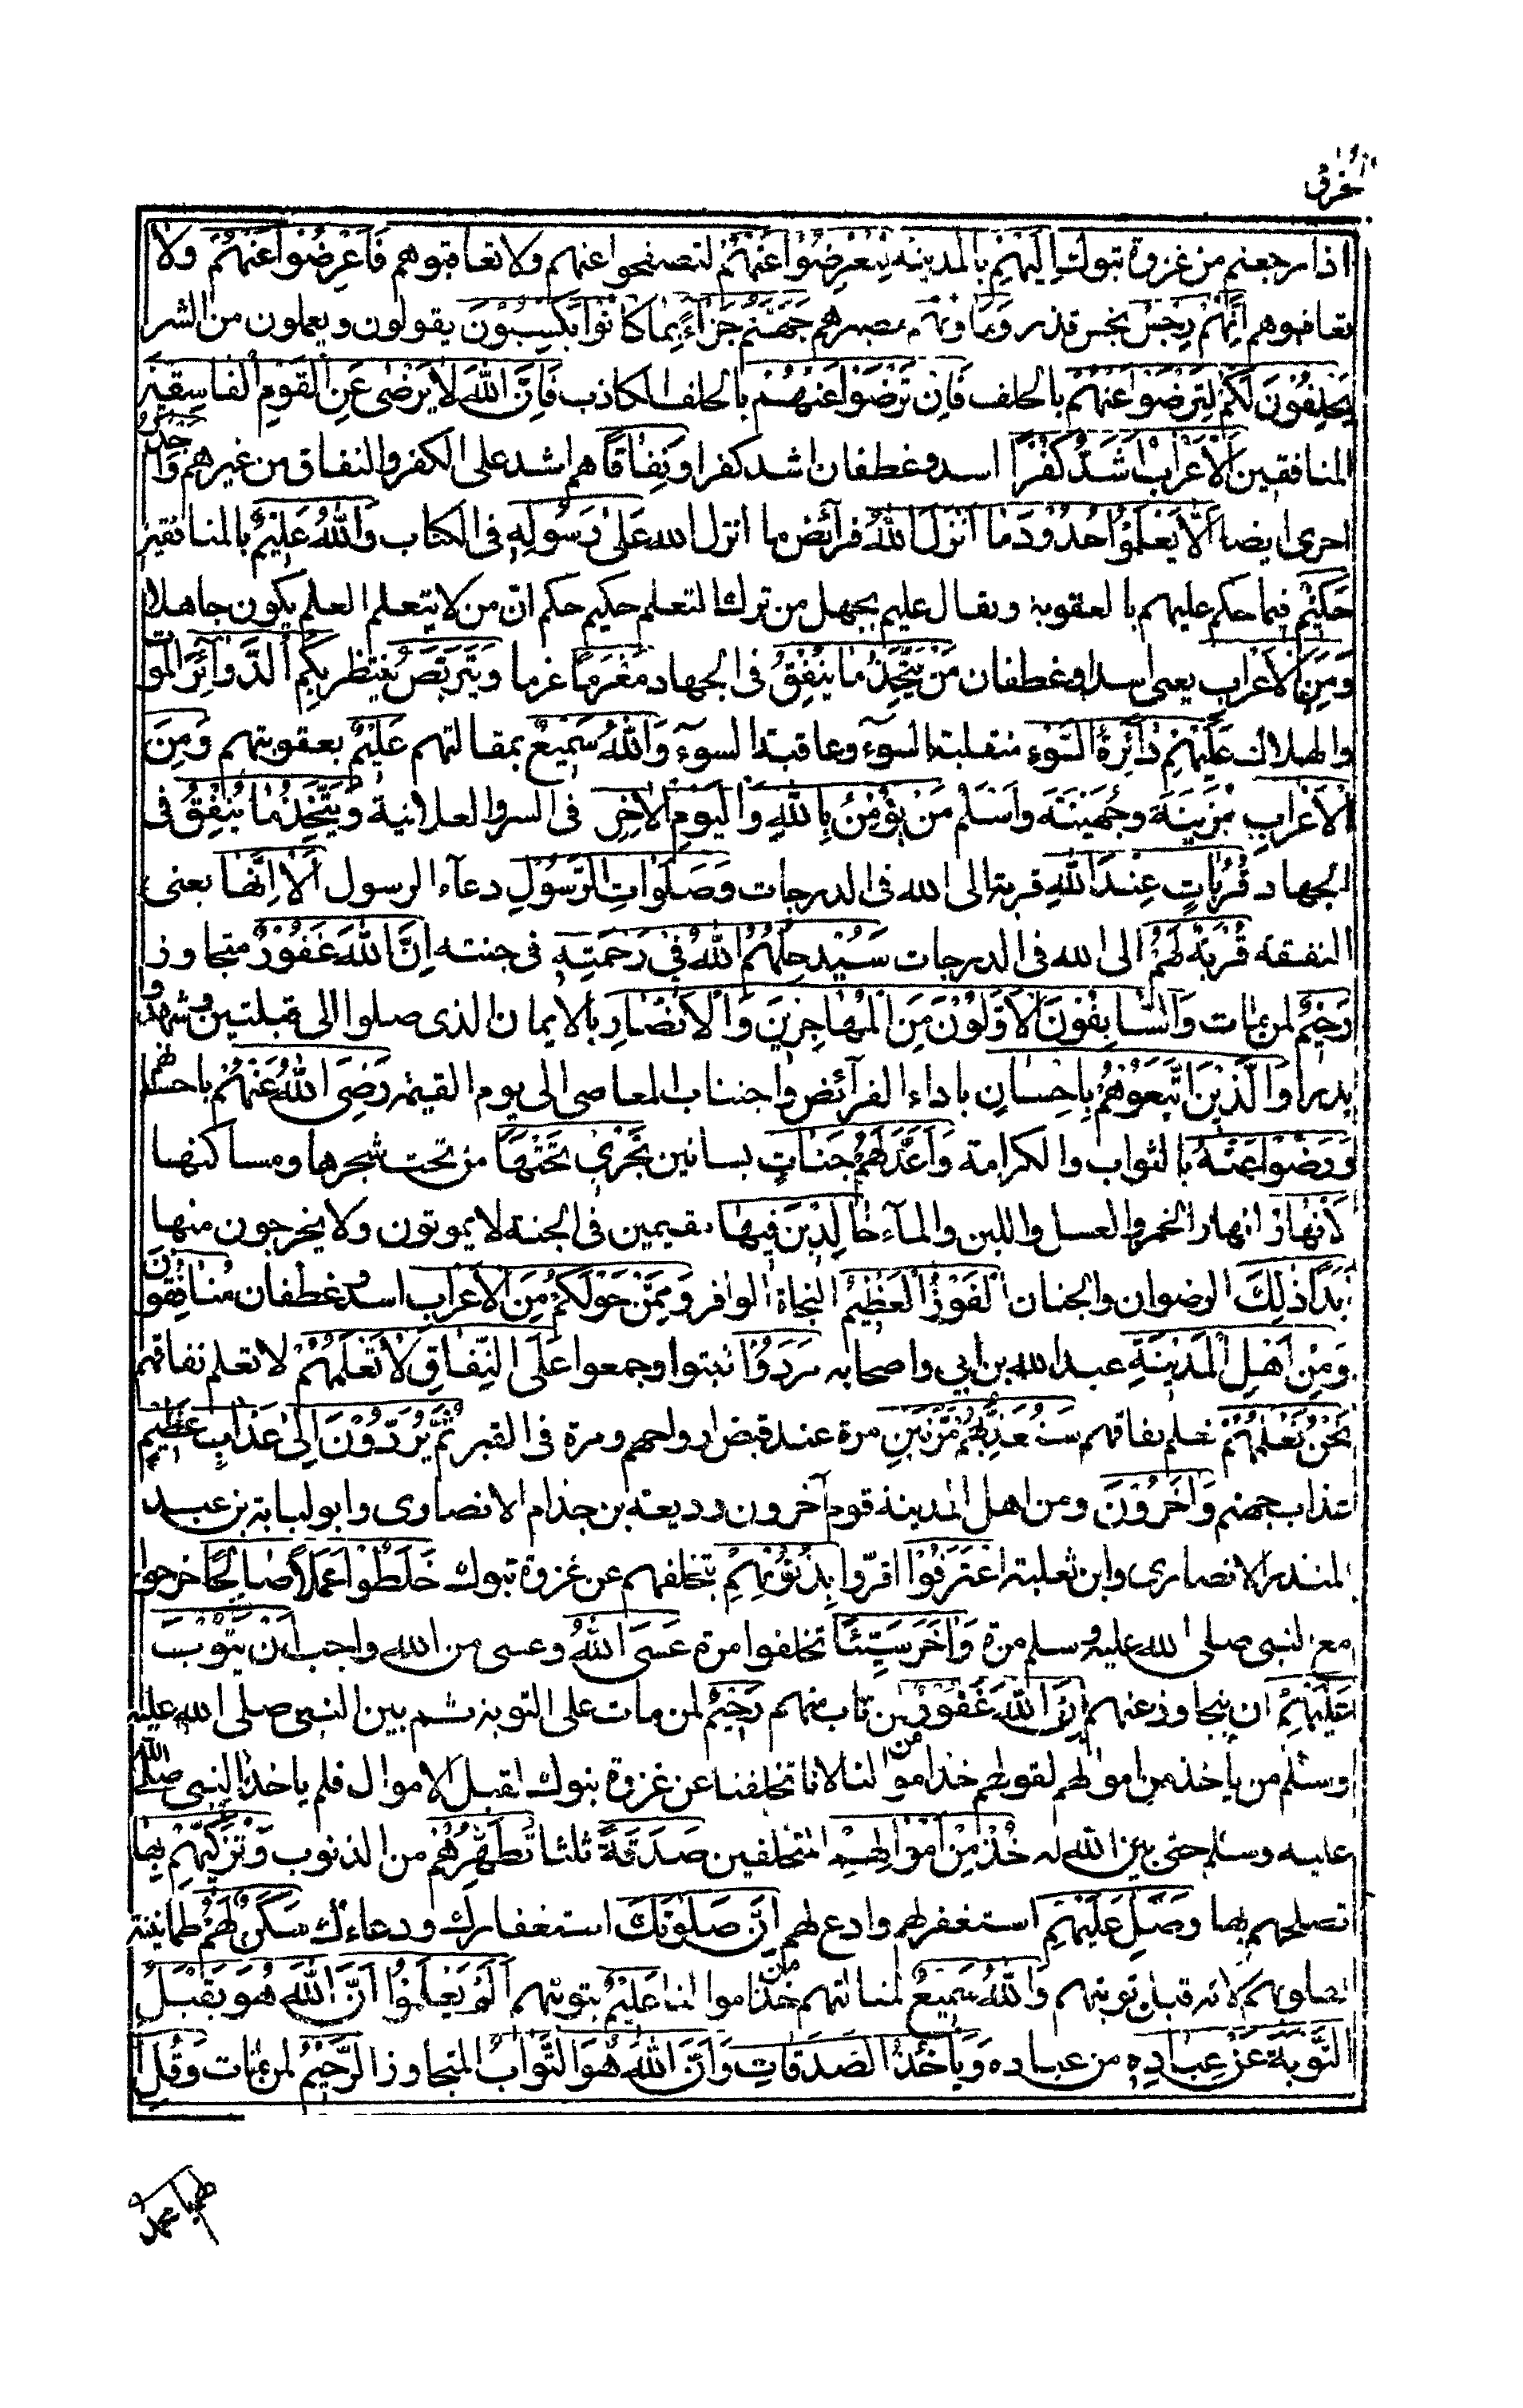 اذا رجعتم من غزوة تبوك اِلَيْهِمْ بالمدينة لِتُعْرِضُوا عَنْهُمْ لتصفحوا عنهم ولا تعاقبوهم فَاَعْرِضُوا عَنْهُمْ ولا
تعاقبوهم اِنَّهُمْ رِجْسٌ نجس قذر وَمَاْوٰىهُمْ مصيرهم جَهَنَّمُ جَزَآءً بِمَا كَانُوا يَكْسِبُوْنَ يقولون ويعملون من الشر
يَحْلِفُوْنَ لَكُمْ لِتَرْضَوْا عَنْهُمْ بالحلف فَاِنْ تَرْضَوْا عَنْهُمْ بالحلف الكاذب فَاِنَّ اللّٰهَ لَا يَرْضٰى عَنِ الْقَوْمِ الْفَاسِقِيْنَ
المنافقين اَلْاَعْرَابُ اَشَدُّ كُفْرًا اسد وغطفان اشد كفرا وَنِفَاقًا هم اشد على الكفر والنفاق من غيرهم وَاَجْدَرُ
احرى ايضا اَلَّا يَعْلَمُوْا حُدُوْدَ مَا اَنْزَلَ اللّٰهُ فرائض ما انزل الله عَلٰى رَسُوْلِهِ فى الكتاب وَاللّٰهُ عَلِيْمٌ بالمنافقين
حَكِيْمٌ فيما حكم عليهم بالعقوبة ويقال عليم بجهل من ترك التعلم حكيم حكم ان من لا يتعلم العلم يكون جاهلا
وَمِنَ الْاَعْرَابِ يعنى اسدا وغطفان مَنْ يَتَّخِذُ مَا يُنْفِقُ فى الجهاد مَغْرَمًا غرما وَيَتَرَبَّصُ ينتظر بِكُمُ الدَّوَآئِرَ الموت
والهلاك عَلَيْهِمْ دَآئِرَةُ السَّوْءِ منقلبة السوء وعاقبة السوء وَاللّٰهُ سَمِيْعٌ بمقالتهم عَلِيْمٌ بعقوبتهم وَمِنَ
الْاَعْرَابِ مزينة وجهينة واسلم مَنْ يُؤْمِنُ بِاللّٰهِ وَالْيَوْمِ الْاٰخِرِ فى السر والعلانية وَيَتَّخِذُ مَا يُنْفِقُ فى
الجهاد قُرُبَاتٍ عِنْدَ اللّٰهِ قربة الى الله فى الدرجات وَصَلَوَاتِ الرَّسُوْلِ دعاء الرسول اَلَا اِنَّهَا يعنى
النفقة قُرْبَةٌ لَّهُمْ الى الله فى الدرجات سَيُدْخِلُهُمُ اللّٰهُ فِيْ رَحْمَتِهِ فى جنته اِنَّ اللّٰهَ غَفُوْرٌ متجاوز
رَحِيْمٌ لمن مات وَالسَّابِقُوْنَ الْاَوَّلُوْنَ مِنَ الْمُهَاجِرِيْنَ وَالْاَنْصَارِ بالايمان الذى صلوا الى قبلتين وشهدوا
بدرا وَالَّذِيْنَ اتَّبَعُوْهُمْ بِاِحْسَانٍ باداء الفرائض واجتناب المعاصى الى يوم القيمة رَضِيَ اللّٰهُ عَنْهُمْ باحسانهم
وَرَضُوْا عَنْهُ بالثواب والكرامة وَاَعَدَّ لَهُمْ جَنَّاتٍ بساتين تَجْرِيْ تَحْتَهَا من تحت شجرها ومساكنها
الْاَنْهَارُ انهار الخمر والعسل واللبن والماء خَالِدِيْنَ فِيْهَا مقيمين فى الجنة لا يموتون ولا يخرجون منها
اَبَدًا ذٰلِكَ الرضوان والجنان الْفَوْزُ الْعَظِيْمُ النجاة الوافر وَمِمَّنْ حَوْلَكُمْ مِنَ الْاَعْرَابِ اسد وغطفان مُنَافِقُوْنَ
وَمِنْ اَهْلِ الْمَدِيْنَةِ عبد الله بن ابي واصحابه مَرَدُوْا ثبتوا وجمعوا عَلَى النِّفَاقِ لَا تَعْلَمُهُمْ لا تعلم نفاقهم
نَحْنُ نَعْلَمُهُمْ نعلم نفاقهم سَنُعَذِّبُهُمْ مَرَّتَيْنِ مرة عند قبض ارواحهم ومرة فى القبر ثُمَّ يُرَدُّوْنَ اِلٰى عَذَابٍ عَظِيْمٍ
عذاب جهنم وَاٰخَرُوْنَ ومن اهل المدينة قوم آخرون وديعة بن جذام الانصارى وابو لبابة بن عبد
المنذر الانصارى وابن ثعلبة اعْتَرَفُوْا اقرّوا بِذُنُوْبِهِمْ بتخلفهم عن غزوة تبوك خَلَطُوْا عَمَلًا صَالِحًا خرجوا
مع النبى صلى الله عليه وسلم مرة وَاٰخَرَ سَيِّئًا تخلفوا مرة عَسَى اللّٰهُ وعسى من الله واجب اَنْ يَتُوْبَ
عَلَيْهِمْ ان يتجاوز عنهم اِنَّ اللّٰهَ غَفُوْرٌ لمن تاب منهم رَحِيْمٌ لمن مات على التوبة ثم بين النبى صلى الله عليه
وسلم من ياخذ من اموالهم لقولهم خذ من اموالنا لانا تخلفنا عن غزوة تبوك لقبل الاموال فلم ياخذ النبى صلى الله
عليه وسلم حتى بين الله له خُذْ مِنْ اَمْوَالِهِمْ المتخلفين صَدَقَةً ثلثا تُطَهِّرُهُمْ من الذنوب وَتُزَكِّيْهِمْ بِهَا
تصلحهم بها وَصَلِّ عَلَيْهِمْ استغفر لهم وادع لهم اِنَّ صَلٰوتَكَ استغفارك ودعاءك سَكَنٌ لَّهُمْ طمانينة
لقلوبهم لانه قبل توبتهم وَاللّٰهُ سَمِيْعٌ لمقالتهم خذ من اموالنا عَلِيْمٌ بتوبتهم اَلَمْ يَعْلَمُوْا اَنَّ اللّٰهَ هُوَ يَقْبَلُ
التَّوْبَةَ عَنْ عِبَادِهِ من عباده وَيَاْخُذُ الصَّدَقَاتِ وَاَنَّ اللّٰهَ هُوَ التَّوَّابُ المتجاوز الرَّحِيْمُ لمن مات وَقُلِ